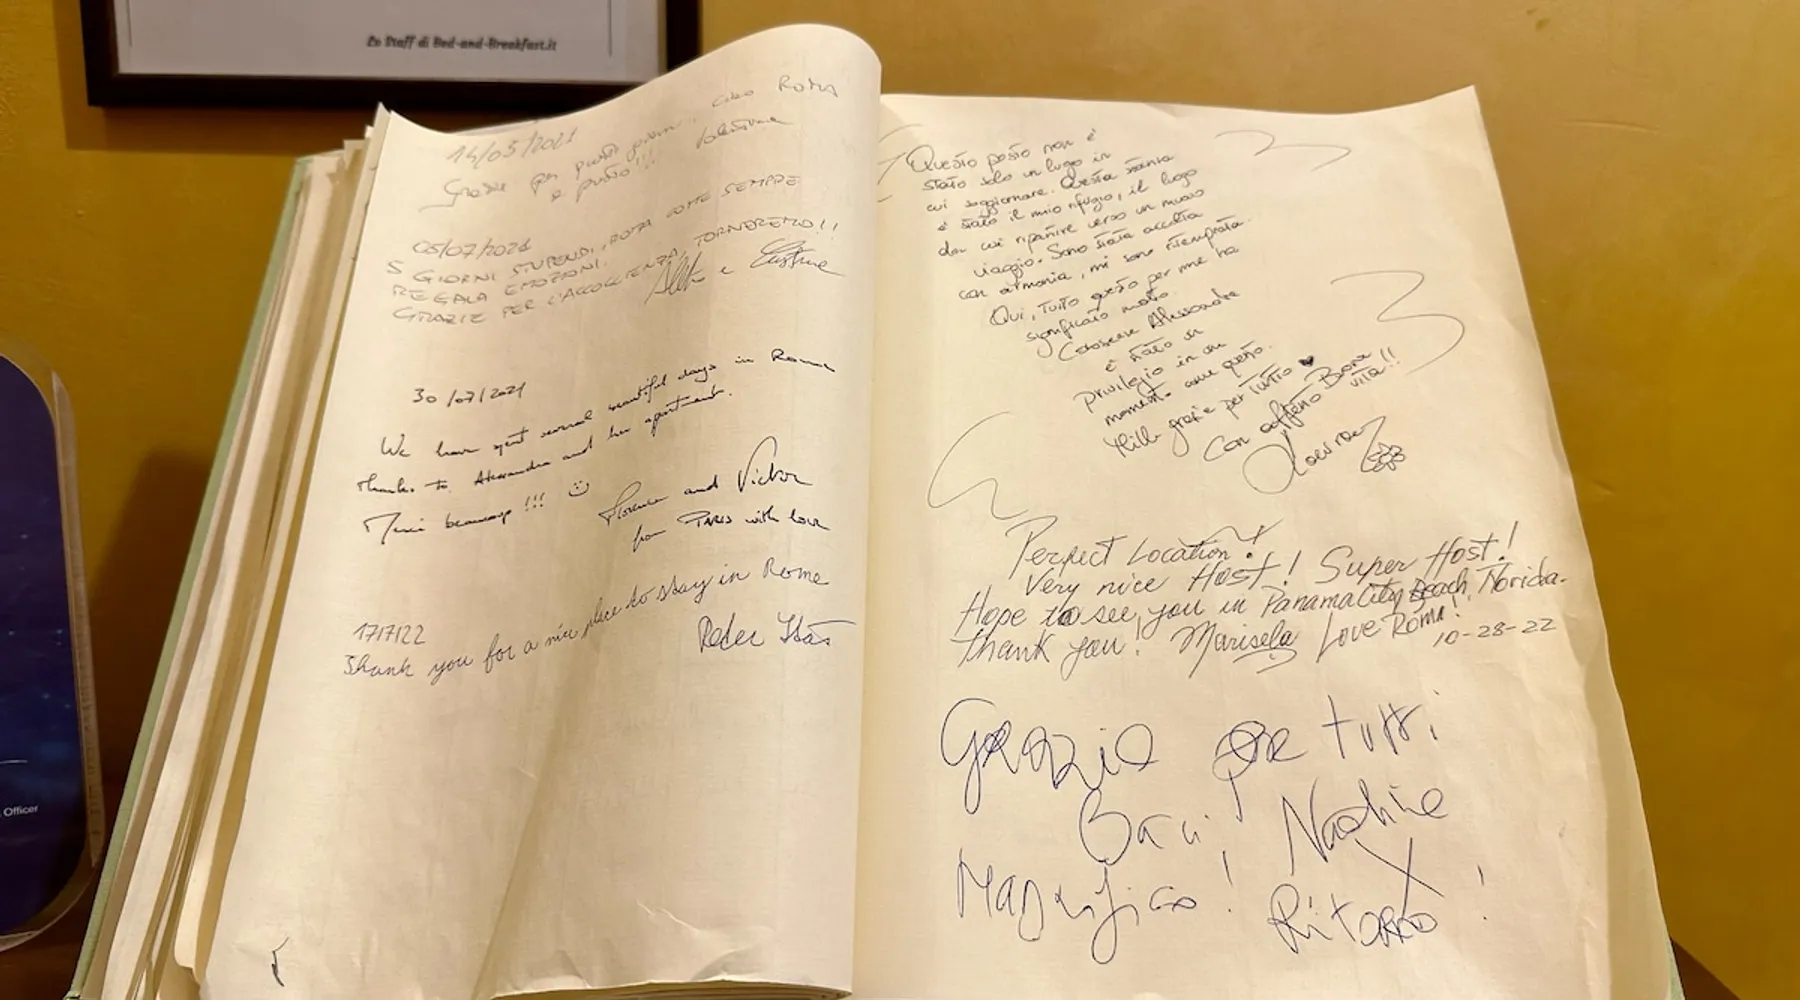 Lo Staff di Bed-and-Breakfast.it
Officer
14/05/2021
Grazie per questi giorni, ciao ROMA
e presto!!!
05/07/2021
5 GIORNI STUPENDI, ROMA COME SEMPRE
REGALA EMOZIONI.
GRAZIE PER L'ACCOGLIENZA, TORNEREMO!!
30/07/2021
We have spent several beautiful days in Rome
thanks to Alessandra and her apartment.
Merci beaucoup!!! ☺
Florence and Victor
from PARIS with love
17/7/22
Thank you for a nice place to stay in Rome
Peter
Questo posto non è
stato solo un luogo in
cui soggiornare. Questa stanza
è stato il mio rifugio, il luogo
da cui ripartire verso un nuovo
viaggio. Sono stata accolta
con armonia, mi sono ritemprata.
Qui, tutto questo per me ha
significato molto.
Conoscere Alessandra
è stato un
privilegio in un
momento come questo.
Mille grazie per tutto ♥
Con affetto Buona
vita!!
Perfect Location!
Very nice Host! Super Host!
Hope to see you in Panama City Beach, Florida.
thank you! Marisela Love Roma!
10-28-22
Grazie per tutti
Baci, Nadine
X
Magnifico! Ritorno!